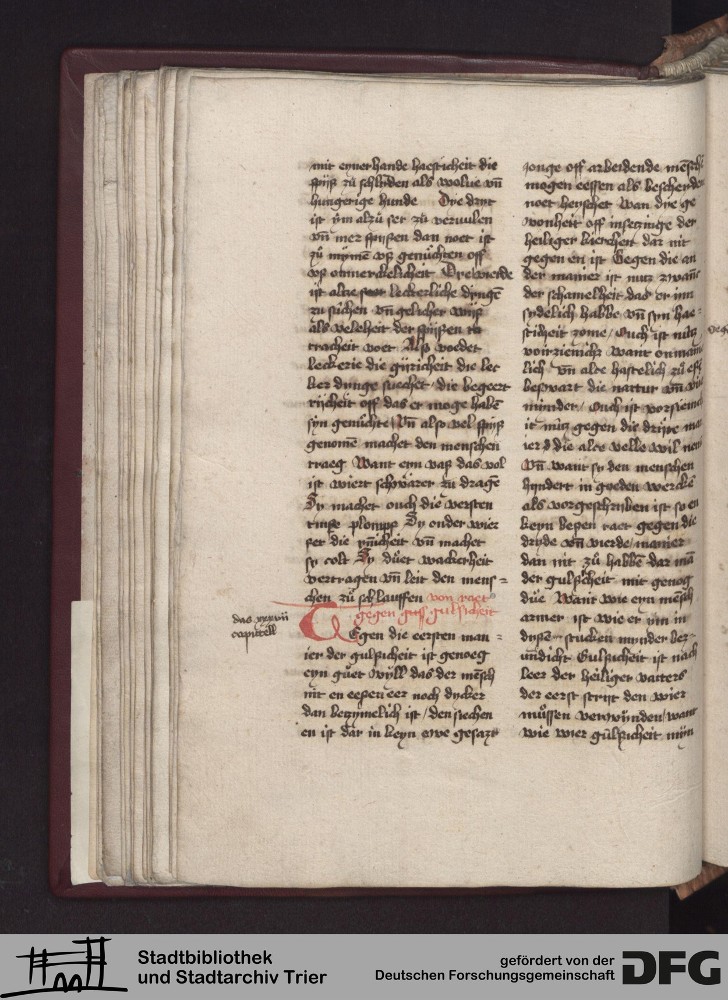 mit eynerhande haesticheit die
spijß zu schlynden als wolue vñ
hungerige hunde Die dryt
ist ym alzu ser zu vervullen
vñ mer spyßen dan noet ist
zu nymẽ vß genuchten off
vß onmerckelicheit Die vierde
ist alze leckerliche dyngẽ
zu suchen vñ gelicher wijß
als veleheit der spijßen
tracheit voet Also voedet
leckerie die gijricheit die lec
ker dynge suechet / die begeert
rijcheit off das er moge habẽ
syn genuchte / vñ also vel spijß
genomẽ machet den menschen
traeg Want eyn vaß das vol
ist wiert schwarer zu dragẽ
Sy machet ouch die versten
tniße plompe Sy onder wier
fet die reynicheit vñ machet
sy colt Sy duet wackerheit
vertragen vñ leit den mens=
chen zu schlauffen von raet
gegen gulsicheit
das xxxvii
capittell
Gegen die eersten man=
ier der gulsicheit ist genoeg
eyn guet wyll das der mẽsch
nit en eeßen eer noch dycker
dan betzymelich ist / den siechen
en ist dar in keyn ewe gesatzt
Jonge off arbeidende mẽschẽ
mogen eessen als bescheiden
noet heyschet Wan die ge
wonheit off insetzinge der
heiliger kierchen dar nit
gegen en ist Gegen die an
der manier ist nutz
der schamelheit das er im
sydelich habbe vñ syn hae=
sticheit zome / Ouch ist nutz
voirzienicht Want onmanir
lich vñ alte hastelich zu
beswart die nattur vñ
mynder / Ouch ist vorsienich
it nutz gegen die dryte ma
ier die alte velle wil nemẽ
vñ want sy den menschen
hyndert in goeden wercken
als vorgeschryben ist so en
keyn beßen raet gegen die
dryde vñ vierde manier
dan nit zu habbẽ dar mã
der gulsicheit mit genog
due Want wie eyn mẽsch
armer ist wie er ym in
dyßẽ stucken mynder bez-
undicht Gulsicheit ist nach
leer der heiliger vatters
der eerst stryt den wier
mussen verwynden / want
wie wier gulsicheit nyn
Stadtbibliothek
und Stadtarchiv Trier
gefördert von der
Deutschen Forschungsgemeinschaft
DFG